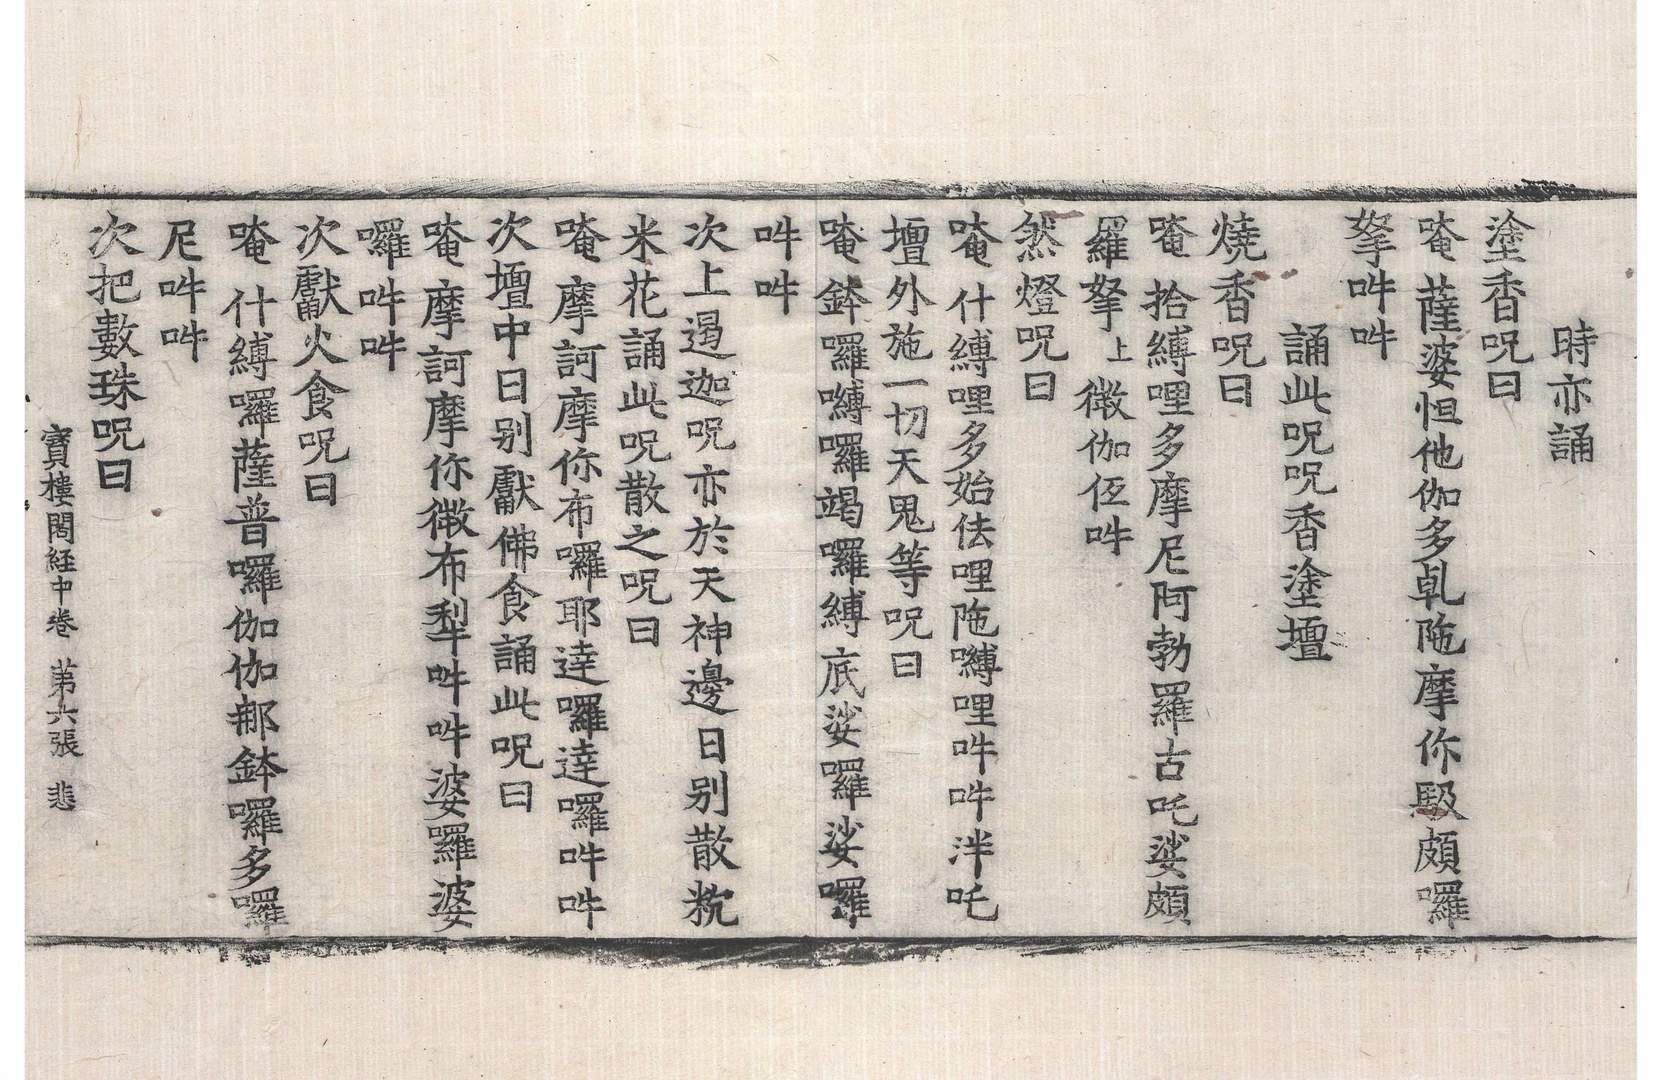 時亦誦
塗香呪曰
唵薩婆怛他伽多乹陁摩你駊頗囉
拏吽吽
誦此呪呪香塗壇
燒香呪曰
唵拾縛哩多摩尼阿勃羅古吒娑頗
羅拏上㣲伽伍吽
然燈呪曰
唵什縛哩多始佉哩陁嚩哩吽吽泮吒
壇外施一切天鬼等呪曰
唵鉢囉嚩囉竭囉縛底娑囉娑囉
吽吽
次上遏迦呪亦於天神邊日別散䴬
米花誦此呪散之呪曰
唵摩訶摩你布囉耶達囉達囉吽吽
次壇中日別獻佛食誦此呪曰
唵摩訶摩你㣲布犁吽吽婆囉婆
囉吽吽
次獻火食呪曰
唵什縛囉薩普囉伽伽那鉢囉多囉
尼吽吽
次把數珠呪曰
寶樓閣経中卷 第六張 悲